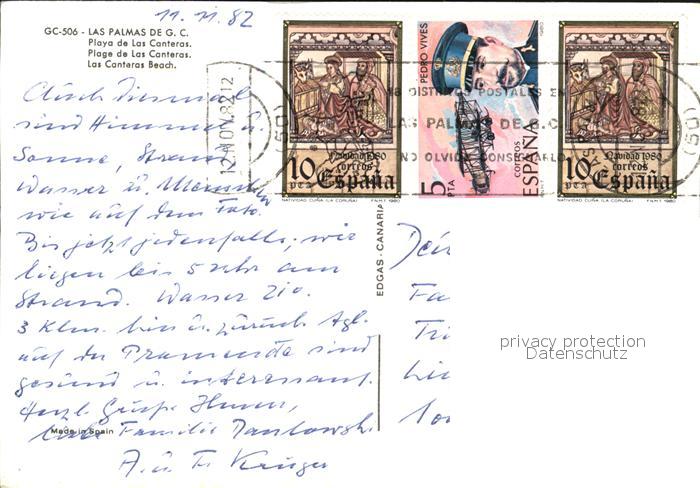 11.11.82
GC-506 - LAS PALMAS DE G. C.
Playa de Las Canteras.
Plage de Las Canteras.
Las Canteras Beach.
Auch diesmal
sind Himmel u.
Sonne, Strand
Wasser u. Menschen
wie auf dem Foto.
Bis jetzt jedenfalls, wir
liegen bis 5 Uhr am
Strand. Wasser 21°.
3 Klm. hin u. zurück tgl.
auf der Promenade sind
gesund u. interessant.
Herzl. Grüße Ihnen,
Familie
A. u. F. Krüger
Made in Spain
EDGAS - CANARIA
12 NOV. 82 12
10
PTA
Navidad 1980
correos
España
NATIVIDAD CUIÑA (LA CORUÑA) F.N.M.T. 1980
PEDRO VIVES
1980
5
PTA
CORREOS
ESPAÑA
F.N.M.T.
10
PTA
Navidad 1980
correos
España
NATIVIDAD CUIÑA (LA CORUÑA) F.N.M.T. 1980
DISTRITOS POSTALES EN
LAS PALMAS DE G.C.
NO OLVIDE CONSIGNARLO
Fa
privacy protection
Datenschutz